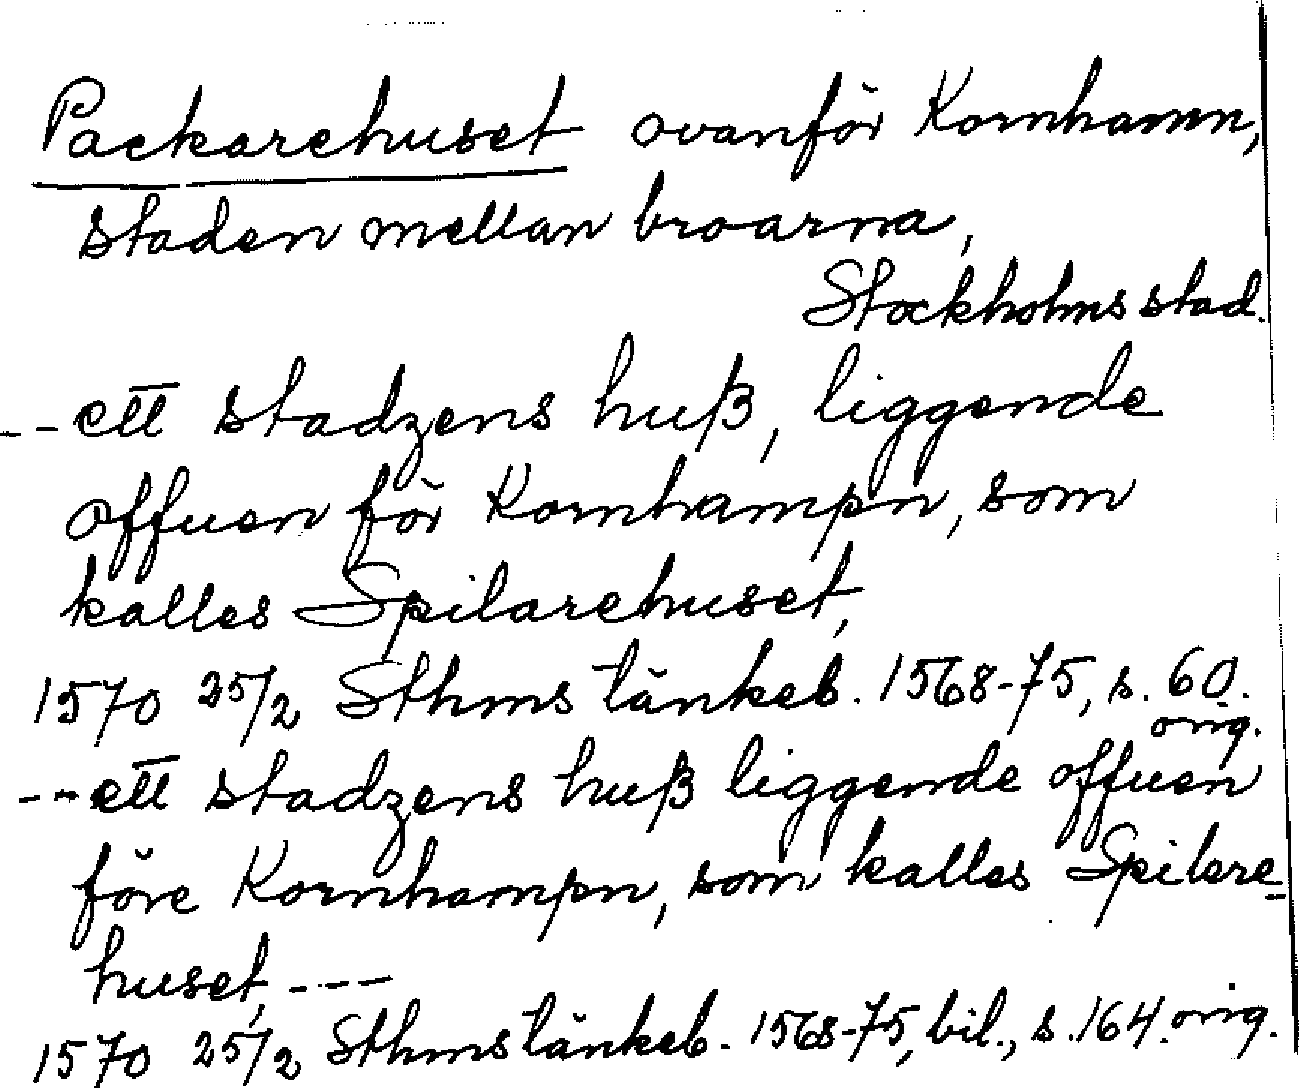 Packarehuset ovanför Kornhamn,
staden mellan broarna,
Stockholms stad.
-- ett stadzens huß, liggende
offuen för Kornhampn, som
kalles Spilarehuset,
1570 25/2 Sthms tänkeb. 1568-75, s. 60.
orig.
-- ett stadzens huß liggende offuen
före Kornhampn, som kalles Spilere-
huset, ---
1570 25/2 Sthms tänkeb. 1568-75, bil., s. 164. orig.